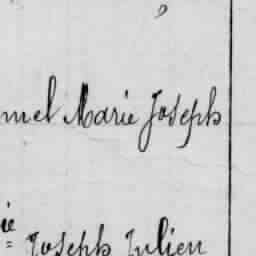 mel Marie Joseph
ie
Joseph Julien